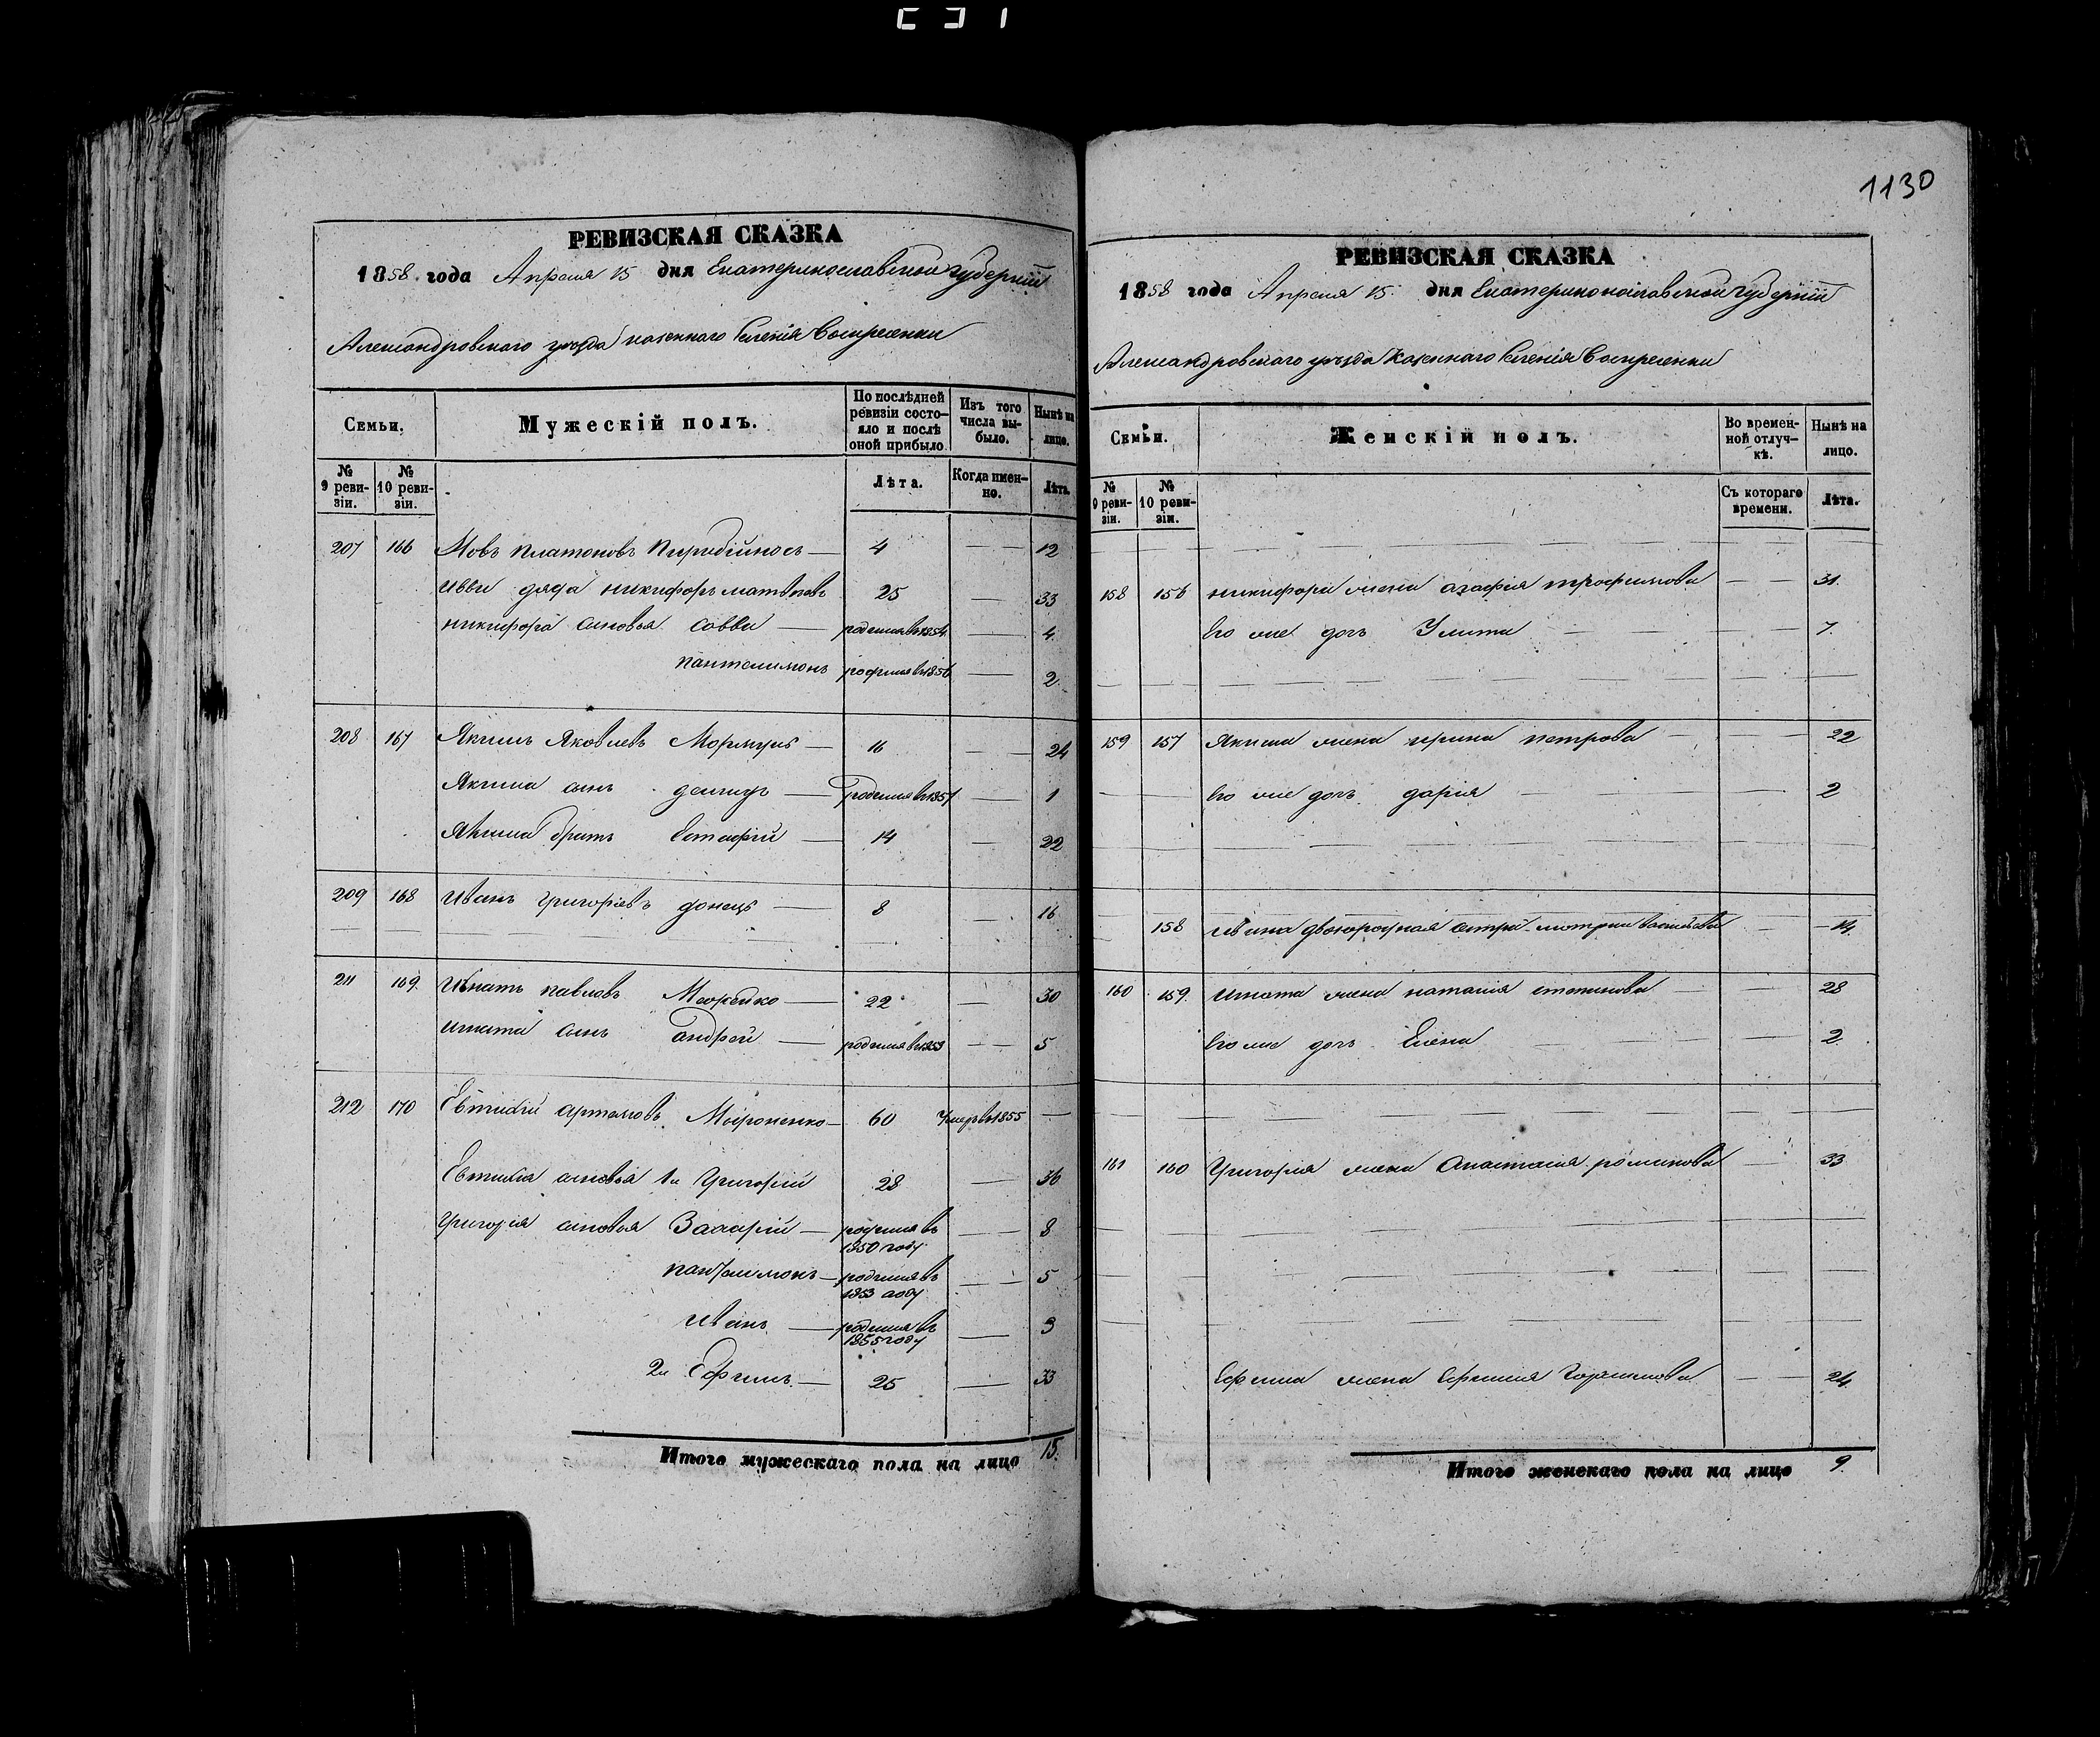 1130
РЕВИЗСКАЯ СКАЗКА
1858 года Апреля 15 дня Екатеринославской Губернiи
Александровскаго уѣзда казеннаго селенiя Воскресенки
Семьи. Мужескiй полъ. По послѣдней ревизiи состояло и послѣ оной прибыло. Изъ того числа выбыло. Нынѣ на лицо.
№ 9 ревизiи. № 10 ревизiи. Лѣта. Когда именно. Лѣта.
207 166 Платоновъ 4 — 12
дядя никифоръ матвѣевъ 25 — 33
никифора сыновья Савва — родился въ 1854 — 4
пантелимонъ родился въ 1856 — 2
208 167 Якимъ Яковлевъ — 16 — 24
Якима сынъ демидъ — родился въ 1857 — 1
Якима братъ Естафiй — 14 — 22
209 168 Иванъ григорiевъ донецъ — 8 — 16
211 169 Игнатъ павловъ — 22 — 30
игната сынъ андрей — родился в 1853 — 5
212 170 Евтихiй артемовъ Мироненко — 60 Умеръ въ 1855 —
Евтихiя сыновья 1й Григорiй 28 — 36
григорiя сыновья Захарiй — родился въ 1850 году — 8
пантелимонъ — родился въ 1853 году — 5
иванъ — родился въ 1855 году — 3
2й Ефимъ — 25 — 33
Итого мужескаго пола на лицо 15.
РЕВИЗСКАЯ СКАЗКА
1858 года Апреля 15 дня Екатеринославской Губернiи
Александровскаго уѣзда казеннаго селенiя Воскресенки
Семьи. Женскiй полъ. Во временной отлучкѣ. Нынѣ на лицо.
№ 9 ревизiи. № 10 ревизiи. Съ котораго времени. Лѣта.
158 156 никифора жена агафiя трофимова — 31
его же дочь Улита — 7.
159 157 Якима жена ирина петрова — 22
его же дочь дарiя — 2
158 ивана двоюродная сестра — 14.
160 159. игната жена наталiя степанова — 28
его же дочь Елена — 2
161 160 Григорiя жена Анастасiя романова — 33
Ефима жена Ефимiя — 24
Итого женскаго пола на лицо 9.